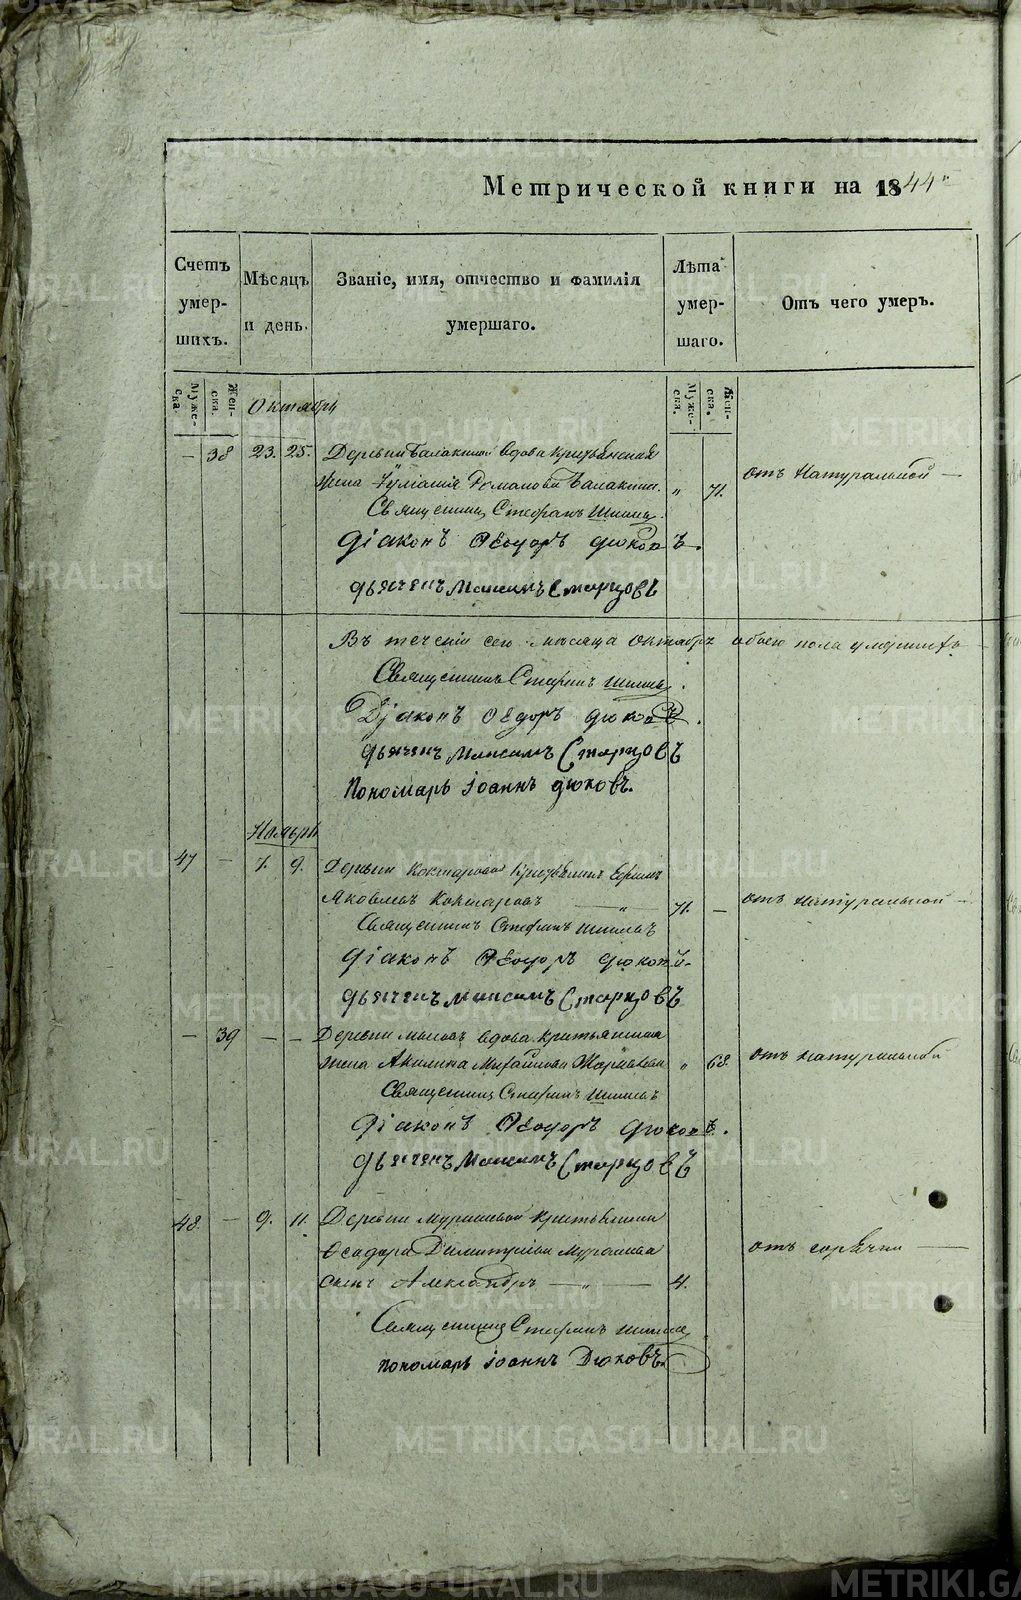 Метрической книги на 1844
Счетъ умер-шихъ.
Мѣсяцъ и день.
Званіе, имя, отчество и фамилія умершаго.
Лѣта умер-шаго.
Отъ чего умеръ.
Муже-ска.
Жен-ска.
Муже-ска.
Жен-ска.
Октябрь
— 38 23. 25. Деревни Балакиной вдова крестьянская
жена Іуліанія Романова Балакина. " 71. отъ натуральной —
Священникъ Стефанъ
Діаконъ Ѳеодоръ Дюковъ.
Дьячекъ Максимъ Старцовъ
Въ теченіи сего мѣсяца октября обоего пола умершихъ —
Священникъ Стефанъ
Діаконъ Ѳеодоръ Дюковъ.
Дьячекъ Максимъ Старцовъ
Пономарь Іоаннъ Дюковъ.
Ноябрь
47 — 7. 9. Деревни крестьянинъ Ефимъ
Яковлевъ — " — 71. — отъ натуральной —
Священникъ Стефанъ
Діаконъ Ѳеодоръ Дюковъ.
Дьячекъ Максимъ Старцовъ
— 39 — — Деревни вдова крестьянская
жена Акилина Михайлова " 68. отъ натуральной
Священникъ Стефанъ
Діаконъ Ѳеодоръ Дюковъ.
Дьячекъ Максимъ Старцовъ
48. — 9. 11. Деревни крестьянина
Ѳеодора Димитріева отъ горячки —
сынъ Александръ — " — 4.
Священникъ Стефанъ
Пономарь Іоаннъ Дюковъ.
METRIKI.GASO-URAL.RU